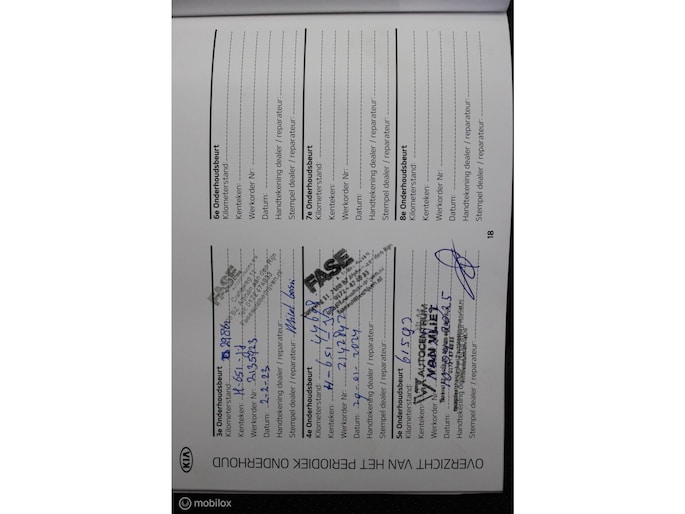 KIA
OVERZICHT VAN HET PERIODIEK ONDERHOUD
3e Onderhoudsbeurt
Kilometerstand:
Kenteken: H-651-
Werkorder Nr:
Datum: 2-2-23
Handtekening dealer / reparateur:
Stempel dealer / reparateur:
FASE
4e Onderhoudsbeurt
Kilometerstand:
Kenteken: H-651-
Werkorder Nr:
Datum: 29-01-2024
Handtekening dealer / reparateur:
Stempel dealer / reparateur:
FASE
5e Onderhoudsbeurt
Kilometerstand: 61592
Kenteken:
Werkorder Nr:
Datum:
Handtekening dealer / reparateur:
Stempel dealer / reparateur:
AUTOCENTRUM
VAN VLIET
6e Onderhoudsbeurt
Kilometerstand:
Kenteken:
Werkorder Nr:
Datum:
Handtekening dealer / reparateur:
Stempel dealer / reparateur:
7e Onderhoudsbeurt
Kilometerstand:
Kenteken:
Werkorder Nr:
Datum:
Handtekening dealer / reparateur:
Stempel dealer / reparateur:
8e Onderhoudsbeurt
Kilometerstand:
Kenteken:
Werkorder Nr:
Datum:
Handtekening dealer / reparateur:
Stempel dealer / reparateur:
18
mobilox